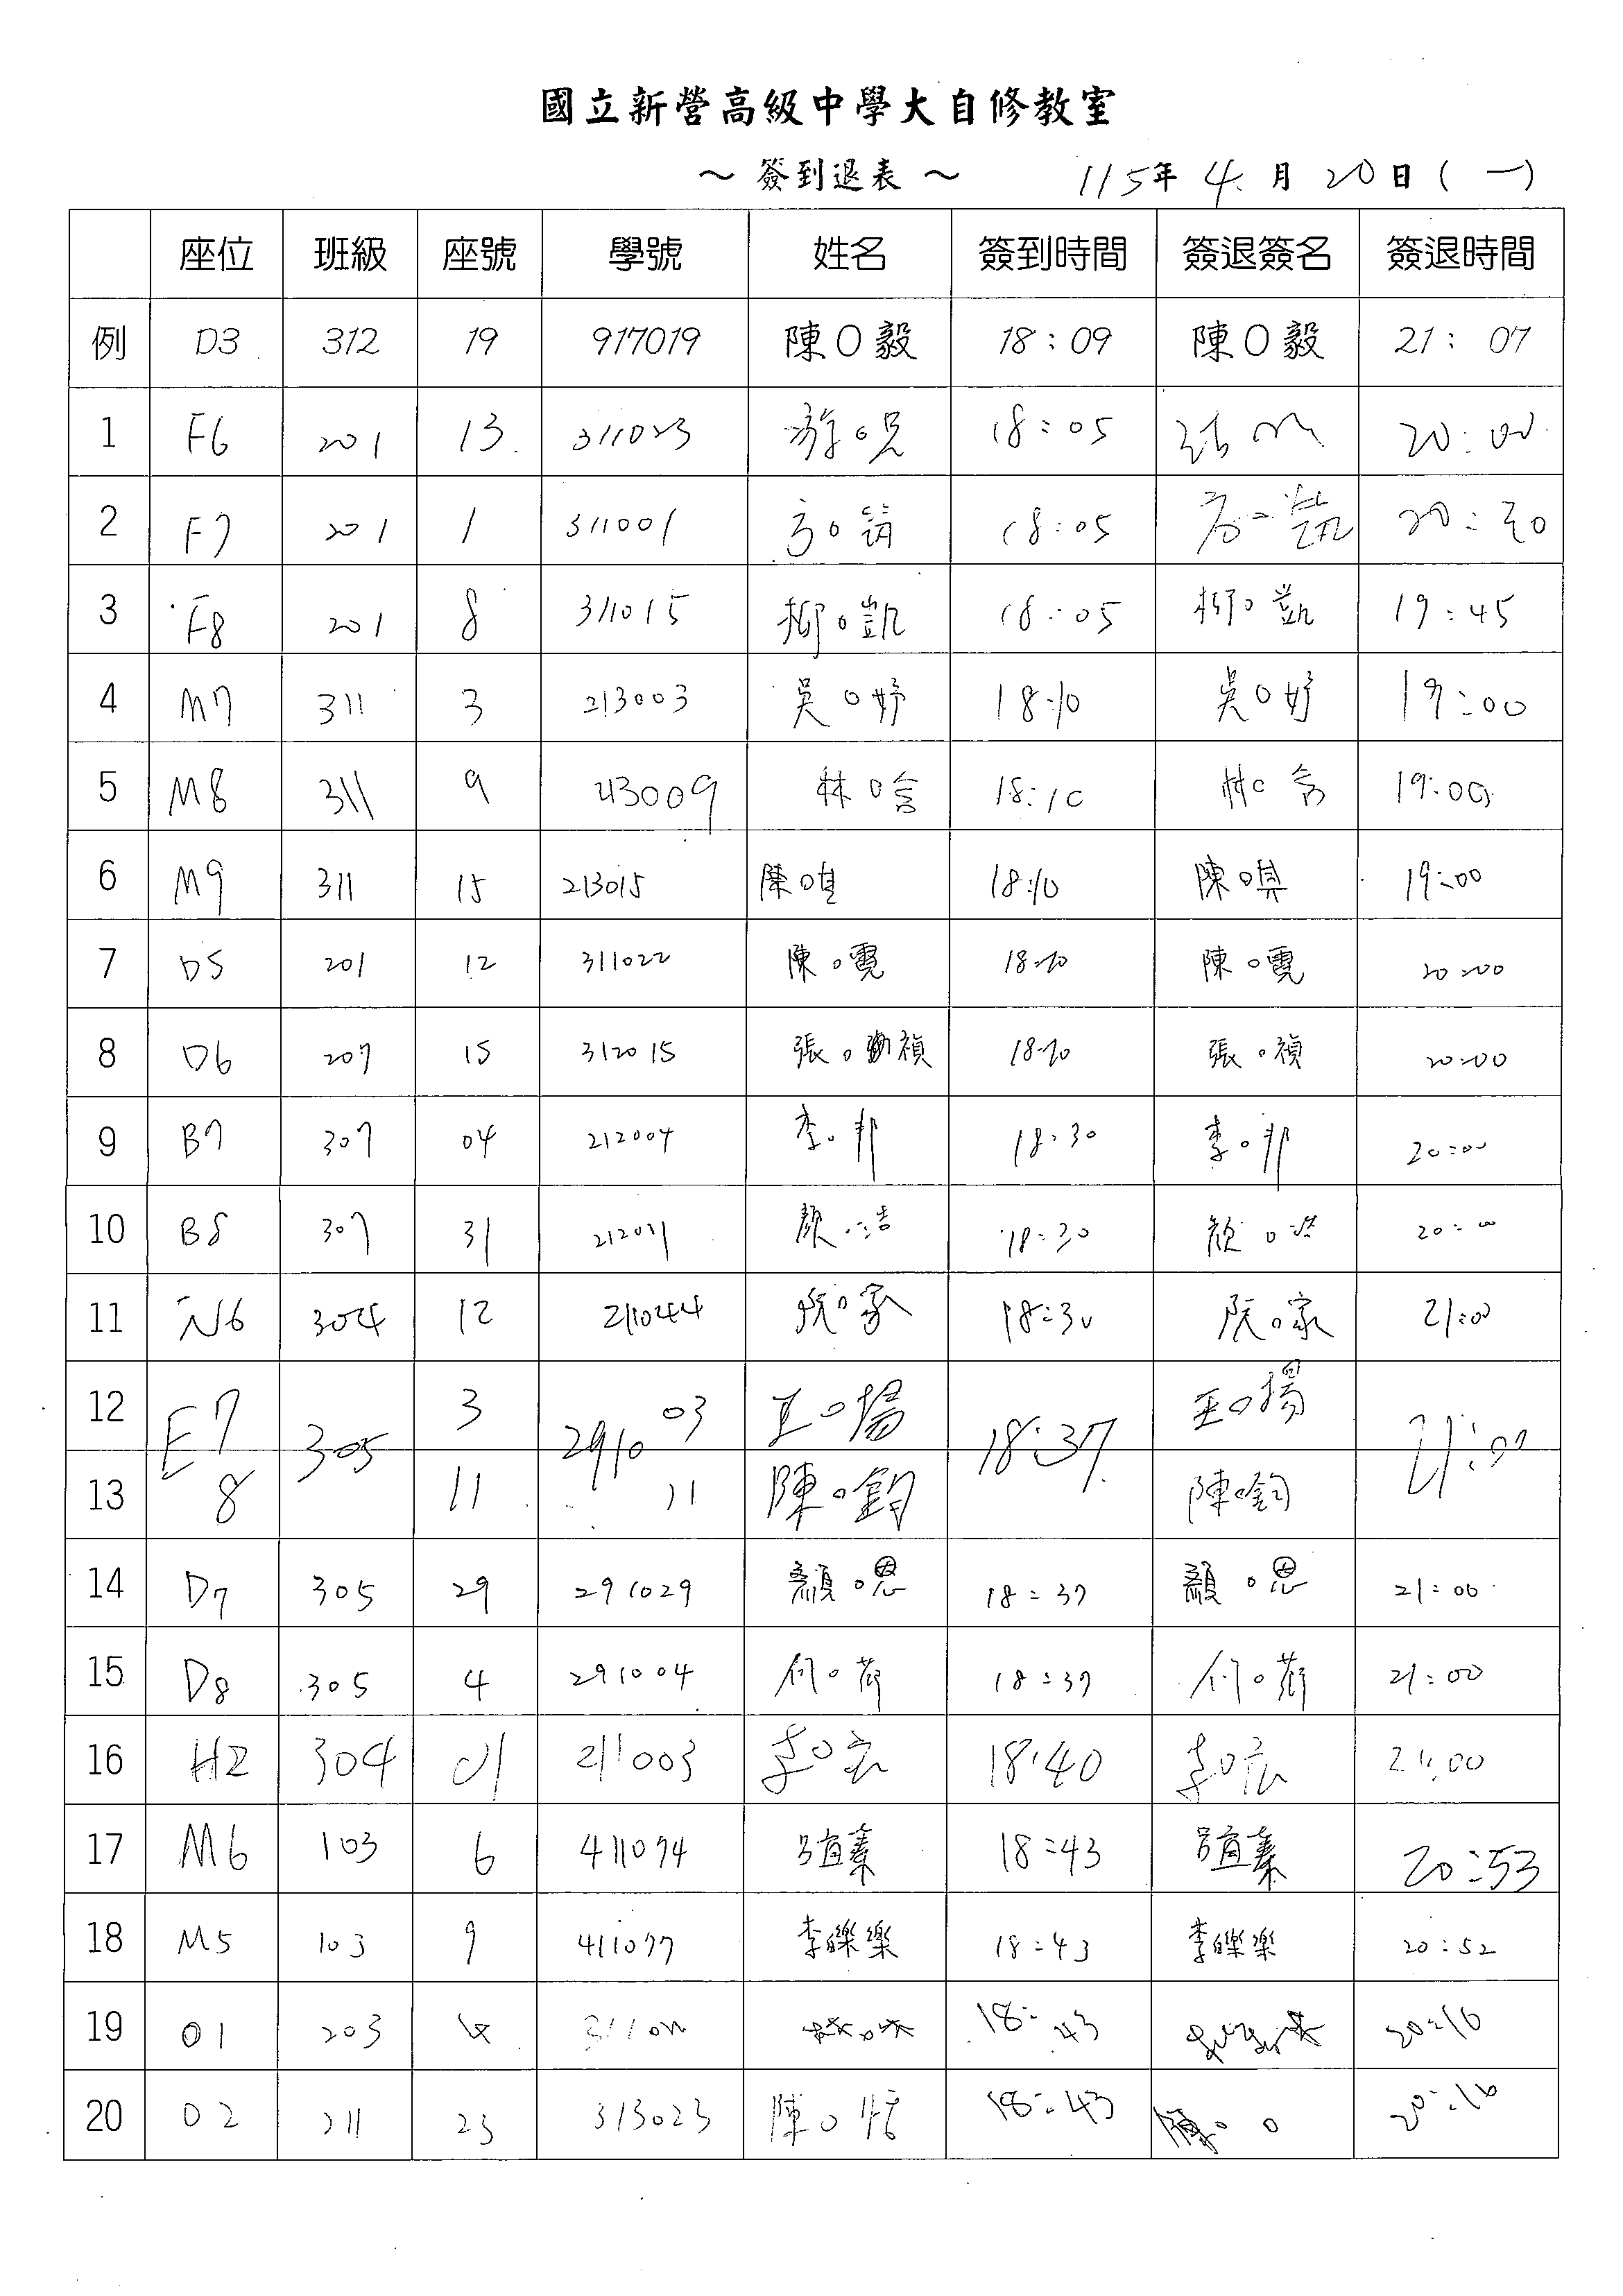 國立新營高級中學大自修教室
～ 簽到退表 ～ 115年 4 月 20日 ( 一 )
座位 班級 座號 學號 姓名 簽到時間 簽退簽名 簽退時間
例 D3 312 19 917019 陳O毅 18:09 陳O毅 21:07
1 F6 201 13 311023 游O 18:05 20:00
2 F7 201 1 311001 18:05 20:20
3 F8 201 8 311015 柳O凱 18:05 柳O凱 19:45
4 M7 311 3 213003 吳O妤 18:10 吳O妤 19:00
5 M8 311 9 213009 林O含 18:10 林O含 19:00
6 M9 311 15 213015 陳O 18:10 陳O 19:00
7 D5 201 12 311022 陳O霓 18:20 陳O霓 20:00
8 D6 207 15 312015 張O禎 18:20 張O禎 20:00
9 B7 307 04 212004 李O邦 18:30 李O邦 20:00
10 B8 307 31 212031 顏O浩 18:30 顏O浩 20:00
11 N6 304 12 211044 阮O家 18:30 阮O家 21:00
12 E7 305 3 291003 王O揚 18:37 王O揚 21:00
13 8 11 11 陳O鈞 陳O鈞
14 D7 305 29 291029 顏O恩 18:37 顏O恩 21:00
15 D8 305 4 291004 何O荷 18:37 何O荷 21:00
16 H2 304 01 211003 李O宏 18:40 李O宏 21:00
17 M6 103 6 411074 呂宜蓁 18:43 呂宜蓁 20:53
18 M5 103 9 411077 李皪樂 18:43 李皪樂 20:52
19 O1 203 4 18:43 20:10
20 O2 211 23 313023 陳O 18:43 陳O O 20:10